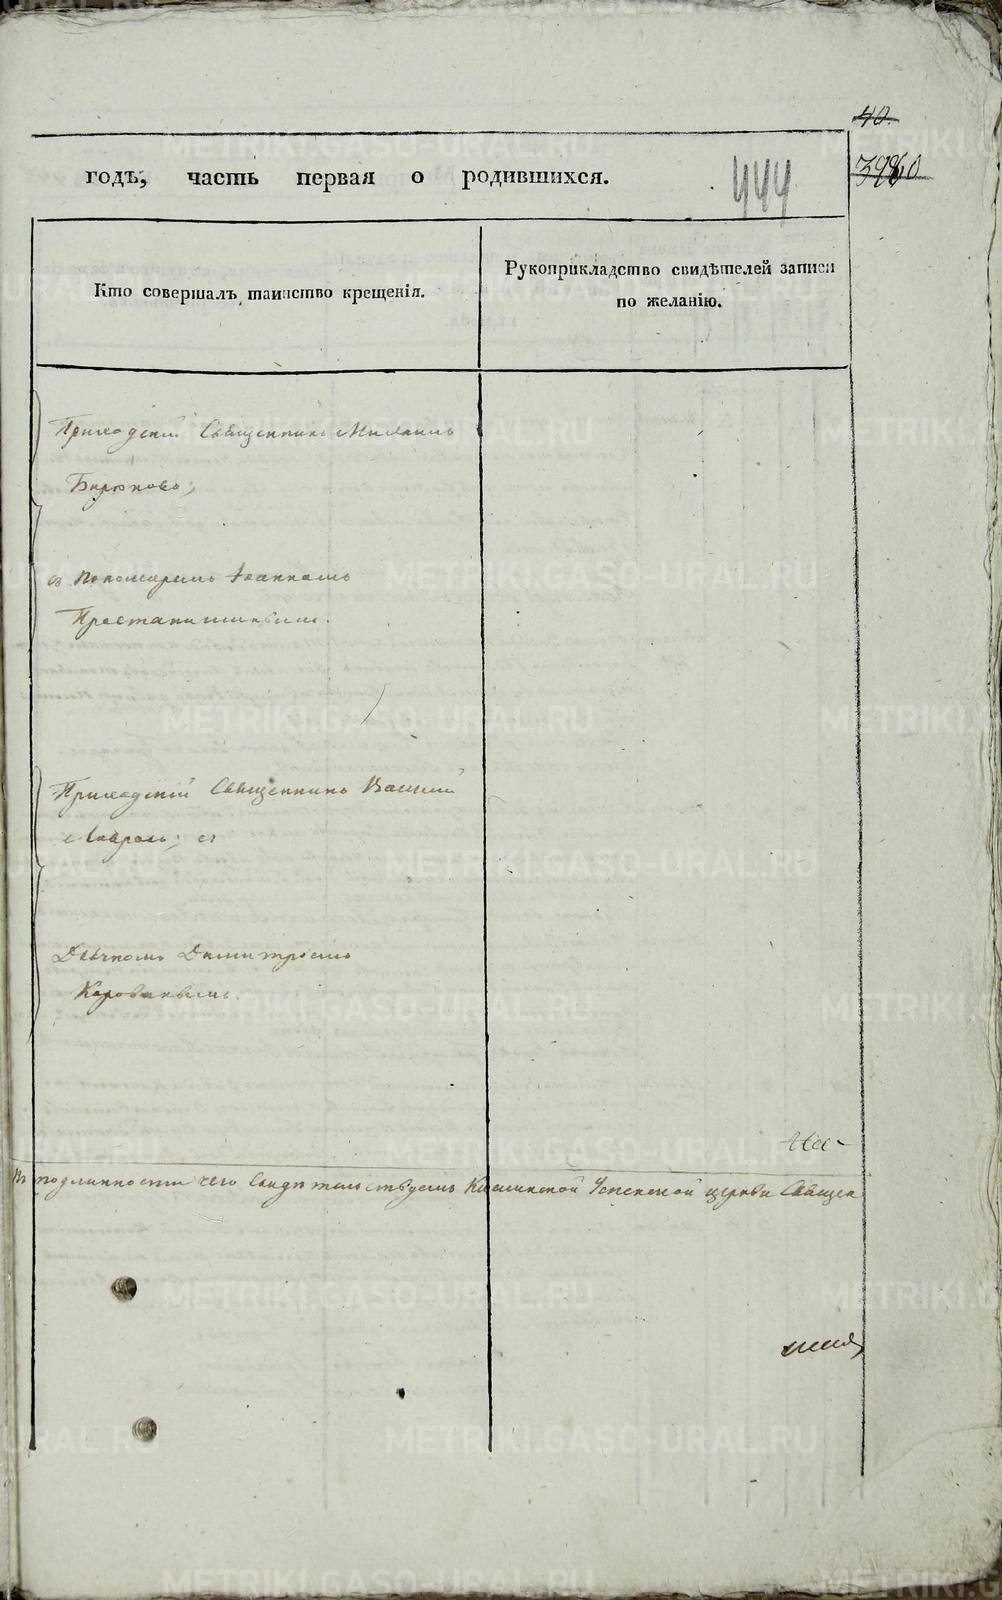 40.
годъ, часть первая о родившихся.
444
Кто совершалъ таинство крещенія.
Рукоприкладство свидѣтелей записи
по желанію.
Приходскій Священникъ Михаилъ
Бирюковъ;
съ Пономаремъ Іоанномъ
Приходскій Священникъ Василій
Лавровъ; съ
Дьячкомъ Димитріемъ
Коровинымъ.
Въ подлинности чего Свидѣтельствуемъ Успенской церкви Священ
METRIKI.GASO-URAL.RU